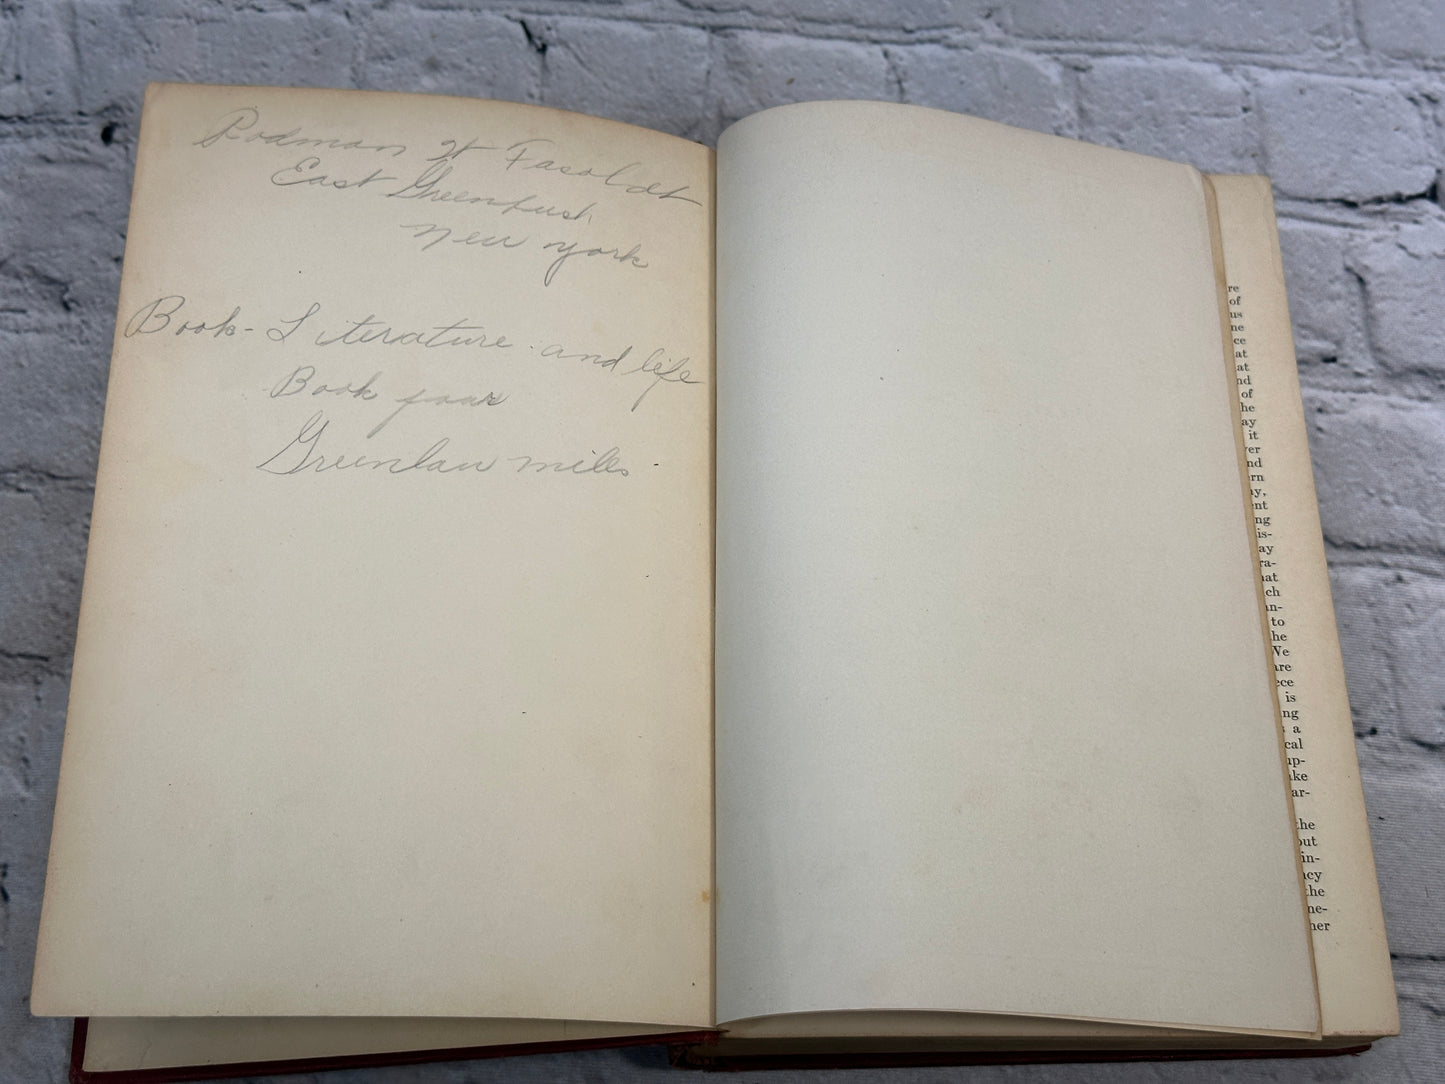 Rodman H Fasoldt
East Greenbush
New York
Book- Literature and life
Book four
Greenlaw miles
re
of
us
ne
ce
at
at
nd
of
he
ay
it
er
nd
rn
ay,
ent
ng
is-
ay
ra-
hat
ch
an-
to
he
We
are
ece
is
ng
a
cal
up-
ke
ar-
the
out
in-
ncy
the
ne-
her